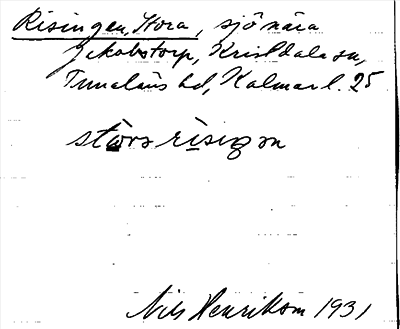 Risingen, Stora, sjö nära
Jakobstorp, Kristdala sn,
Tunaläns hd, Kalmar l. 25
stòra rìsigən
Nils Henrikson 1931